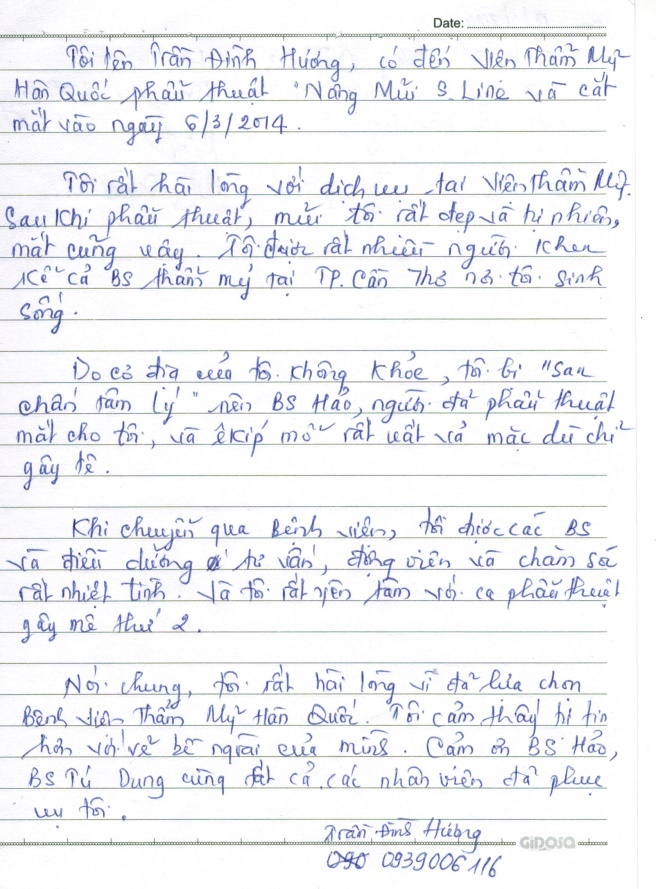 Date:
Tôi tên Trần Đình Hương, có đến Viện Thẩm Mỹ
Hàn Quốc phẫu thuật "Nâng Mũi S.Line và cắt
mắt vào ngày 6/3/2014.
Tôi rất hài lòng với dịch vụ tại Viện Thẩm Mỹ.
Sau khi phẫu thuật, mũi tôi rất đẹp và tự nhiên,
mắt cũng vậy. Tôi được rất nhiều người khen
kể cả BS thẩm mỹ tại TP. Cần Thơ nơi tôi sinh
sống.
Do cơ địa của tôi không khỏe, tôi bị "San
chấn tâm lý" nên BS Hảo, người đã phẫu thuật
mắt cho tôi, và êkíp mổ rất vất vả mặc dù chỉ
gây tê.
Khi chuyển qua Bệnh viện, tôi được các BS
và điều dưỡng tư vấn, động viên và chăm sóc
rất nhiệt tình. Và tôi rất yên tâm với ca phẫu thuật
gây mê thứ 2.
Nói chung, tôi rất hài lòng vì đã lựa chọn
Bệnh viện Thẩm Mỹ Hàn Quốc. Tôi cảm thấy tự tin
hơn với vẻ bề ngoài của mình. Cảm ơn BS Hảo,
BS Tú Dung cùng tất cả các nhân viên đã phục
vụ tôi.
Trần Đình Hương
090 0939006116
GIDOSA